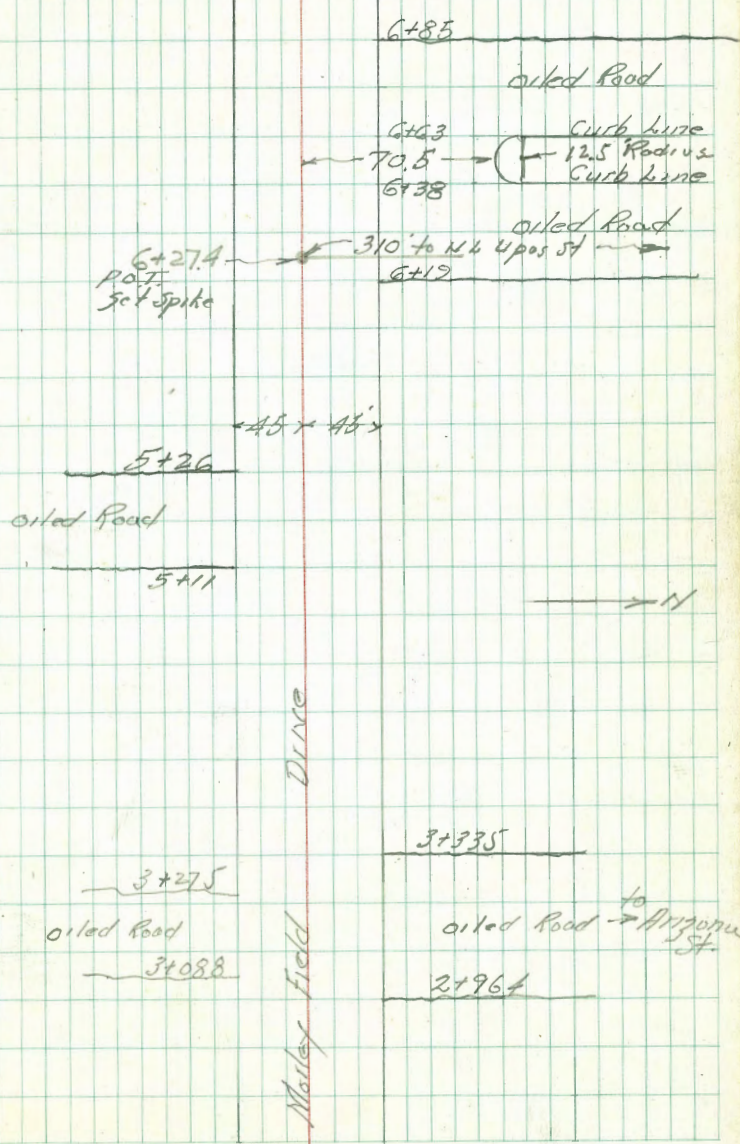 6+85
oiled Road
6+63 Curb Line
70.5 12.5' Radius
6+38 Curb Line
oiled Road
6+27.4 310' to N L Upas St
P.O.T. 6+19
Set Spike
45 45'
5+26
oiled Road
5+11
N
Morley Field Drive
3+335
3+275
to
oiled Road oiled Road Arizona
St.
3+088
2+964